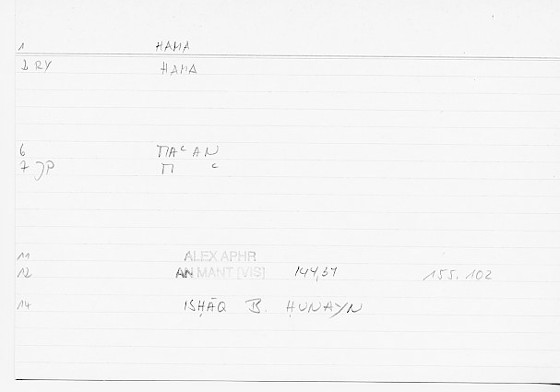 1 HAMA
2 RY HAMA
6 MAᶜAN
7 JP M ᶜ
11 ALEX APHR
12 AN MANT [VIS] 144,37 155.102
14 ISḤĀQ B. ḤUNAYN